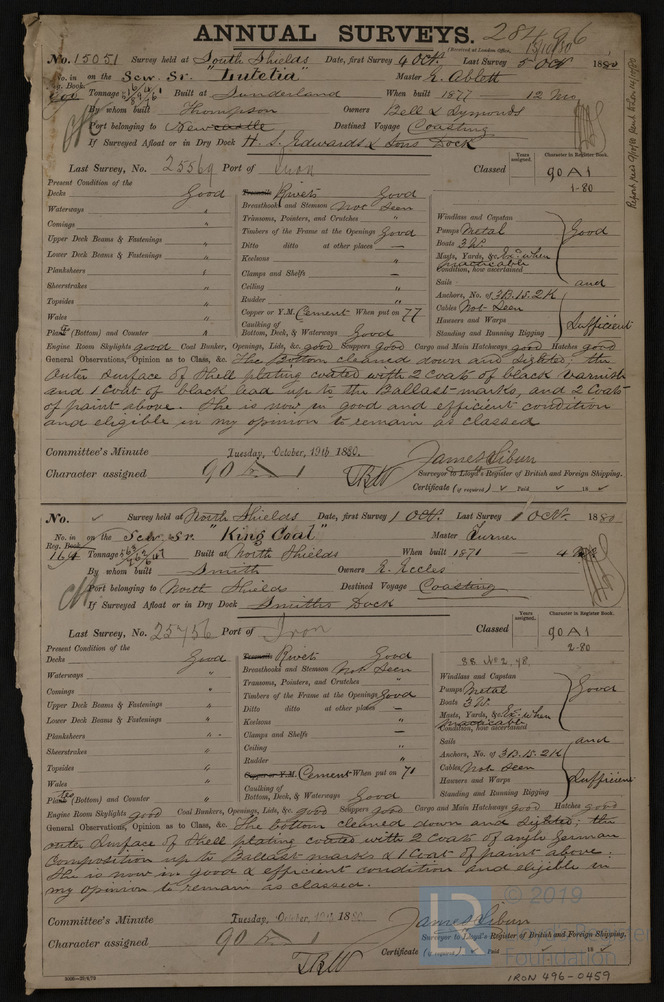 ANNUAL SURVEYS. 28496
Received at London Office, 15/10/80
No. 15051 Survey held at South Shields Date, first Survey 4 Oct. Last Survey 5 Oct 1880
No. in Reg. Book on the Scw. Sr. "Lutetia" Master E. Ablett
Tonnage Built at Sunderland When built 1877 12 Mo.
By whom built Thompson Owners Bell & Symonds
Port belonging to Newcastle Destined Voyage Coasting
If Surveyed Afloat or in Dry Dock H. S. Edwards & Sons Dock
Last Survey, No. 25569 Port of Iron Classed
Years assigned.
Character in Register Book.
90 A 1
1-80
Present Condition of the
Decks Good
Waterways "
Comings "
Upper Deck Beams & Fastenings "
Lower Deck Beams & Fastenings "
Planksheers "
Sheerstrakes "
Topsides "
Wales "
Plates (Bottom) and Counter "
Treenails Rivets Good
Breasthooks and Stemson Not Seen
Transoms, Pointers, and Crutches "
Timbers of the Frame at the Openings Good
Ditto ditto at other places —
Keelsons "
Clamps and Shelfs —
Ceiling "
Rudder "
Copper or Y.M. Cement When put on 77
Caulking of Bottom, Deck, & Waterways Good
Windlass and Capstan
Pumps Metal
Boats 3 W.
Masts, Yards, &c. Ex. when practicable
Condition, how ascertained
Sails
Anchors, No. of 3B. 1S. 2K
Cables Not Seen
Hawsers and Warps
Standing and Running Rigging
Good
and
Sufficient
Engine Room Skylights good Coal Bunker, Openings, Lids, &c. good Scuppers Good Cargo and Main Hatchways good Hatches good
General Observations, Opinion as to Class, &c. The Bottom cleaned down and sighted; the
outer surface of Shell plating coated with 2 Coats of black varnish
and 1 Coat of black lead up to the Ballast marks, and 2 Coats
of paint above. She is now in good and efficient condition
and eligible in my opinion to remain as classed
Committee's Minute Tuesday, October, 19th 1880.
Character assigned 90 A 1
James Sibun
Surveyor to Lloyd's Register of British and Foreign Shipping.
Certificate (if required) Paid 18
No. Survey held at North Shields Date, first Survey 1 Oct. Last Survey 1 Oct. 1880
No. in Reg. Book on the Scw Sr. "King Coal" Master Turner
Tonnage Built at North Shields When built 1871 4
By whom built Smith Owners E. Eccles
Port belonging to North Shields Destined Voyage Coasting
If Surveyed Afloat or in Dry Dock Smiths Dock
Last Survey, No. 25756 Port of Iron Classed
Years assigned.
Character in Register Book.
90 A 1
2-80
SS No 2. 78
Present Condition of the
Decks Good
Waterways "
Comings "
Upper Deck Beams & Fastenings "
Lower Deck Beams & Fastenings "
Planksheers "
Sheerstrakes "
Topsides "
Wales "
Plates (Bottom) and Counter "
Treenails Rivets Good
Breasthooks and Stemson Not Seen
Transoms, Pointers, and Crutches "
Timbers of the Frame at the Openings Good
Ditto ditto at other places —
Keelsons "
Clamps and Shelfs —
Ceiling "
Rudder "
Copper or Y.M. Cement When put on 71
Caulking of Bottom, Deck, & Waterways Good
Windlass and Capstan
Pumps Metal
Boats 3 W.
Masts, Yards, &c. Ex. when practicable
Condition, how ascertained
Sails
Anchors, No. of 3B. 1S. 2K
Cables Not Seen
Hawsers and Warps
Standing and Running Rigging
Good
and
Sufficient
Engine Room Skylights good Coal Bunkers, Openings, Lids, &c. good Scuppers good Cargo and Main Hatchways good Hatches good
General Observations, Opinion as to Class, &c. The bottom cleaned down and sighted; the
outer surface of Shell plating coated with 2 Coats of anglo German
Composition up to Ballast marks & 1 Coat of paint above;
She is now in good & efficient condition and eligible in
my opinion to remain as classed.
Committee's Minute Tuesday, October, 19th 1880
Character assigned 90 A 1
James Sibun
Surveyor to Lloyd's Register of British and Foreign Shipping.
Certificate (if required) Paid 18
© 2019
Foundation
IRON 496-0459